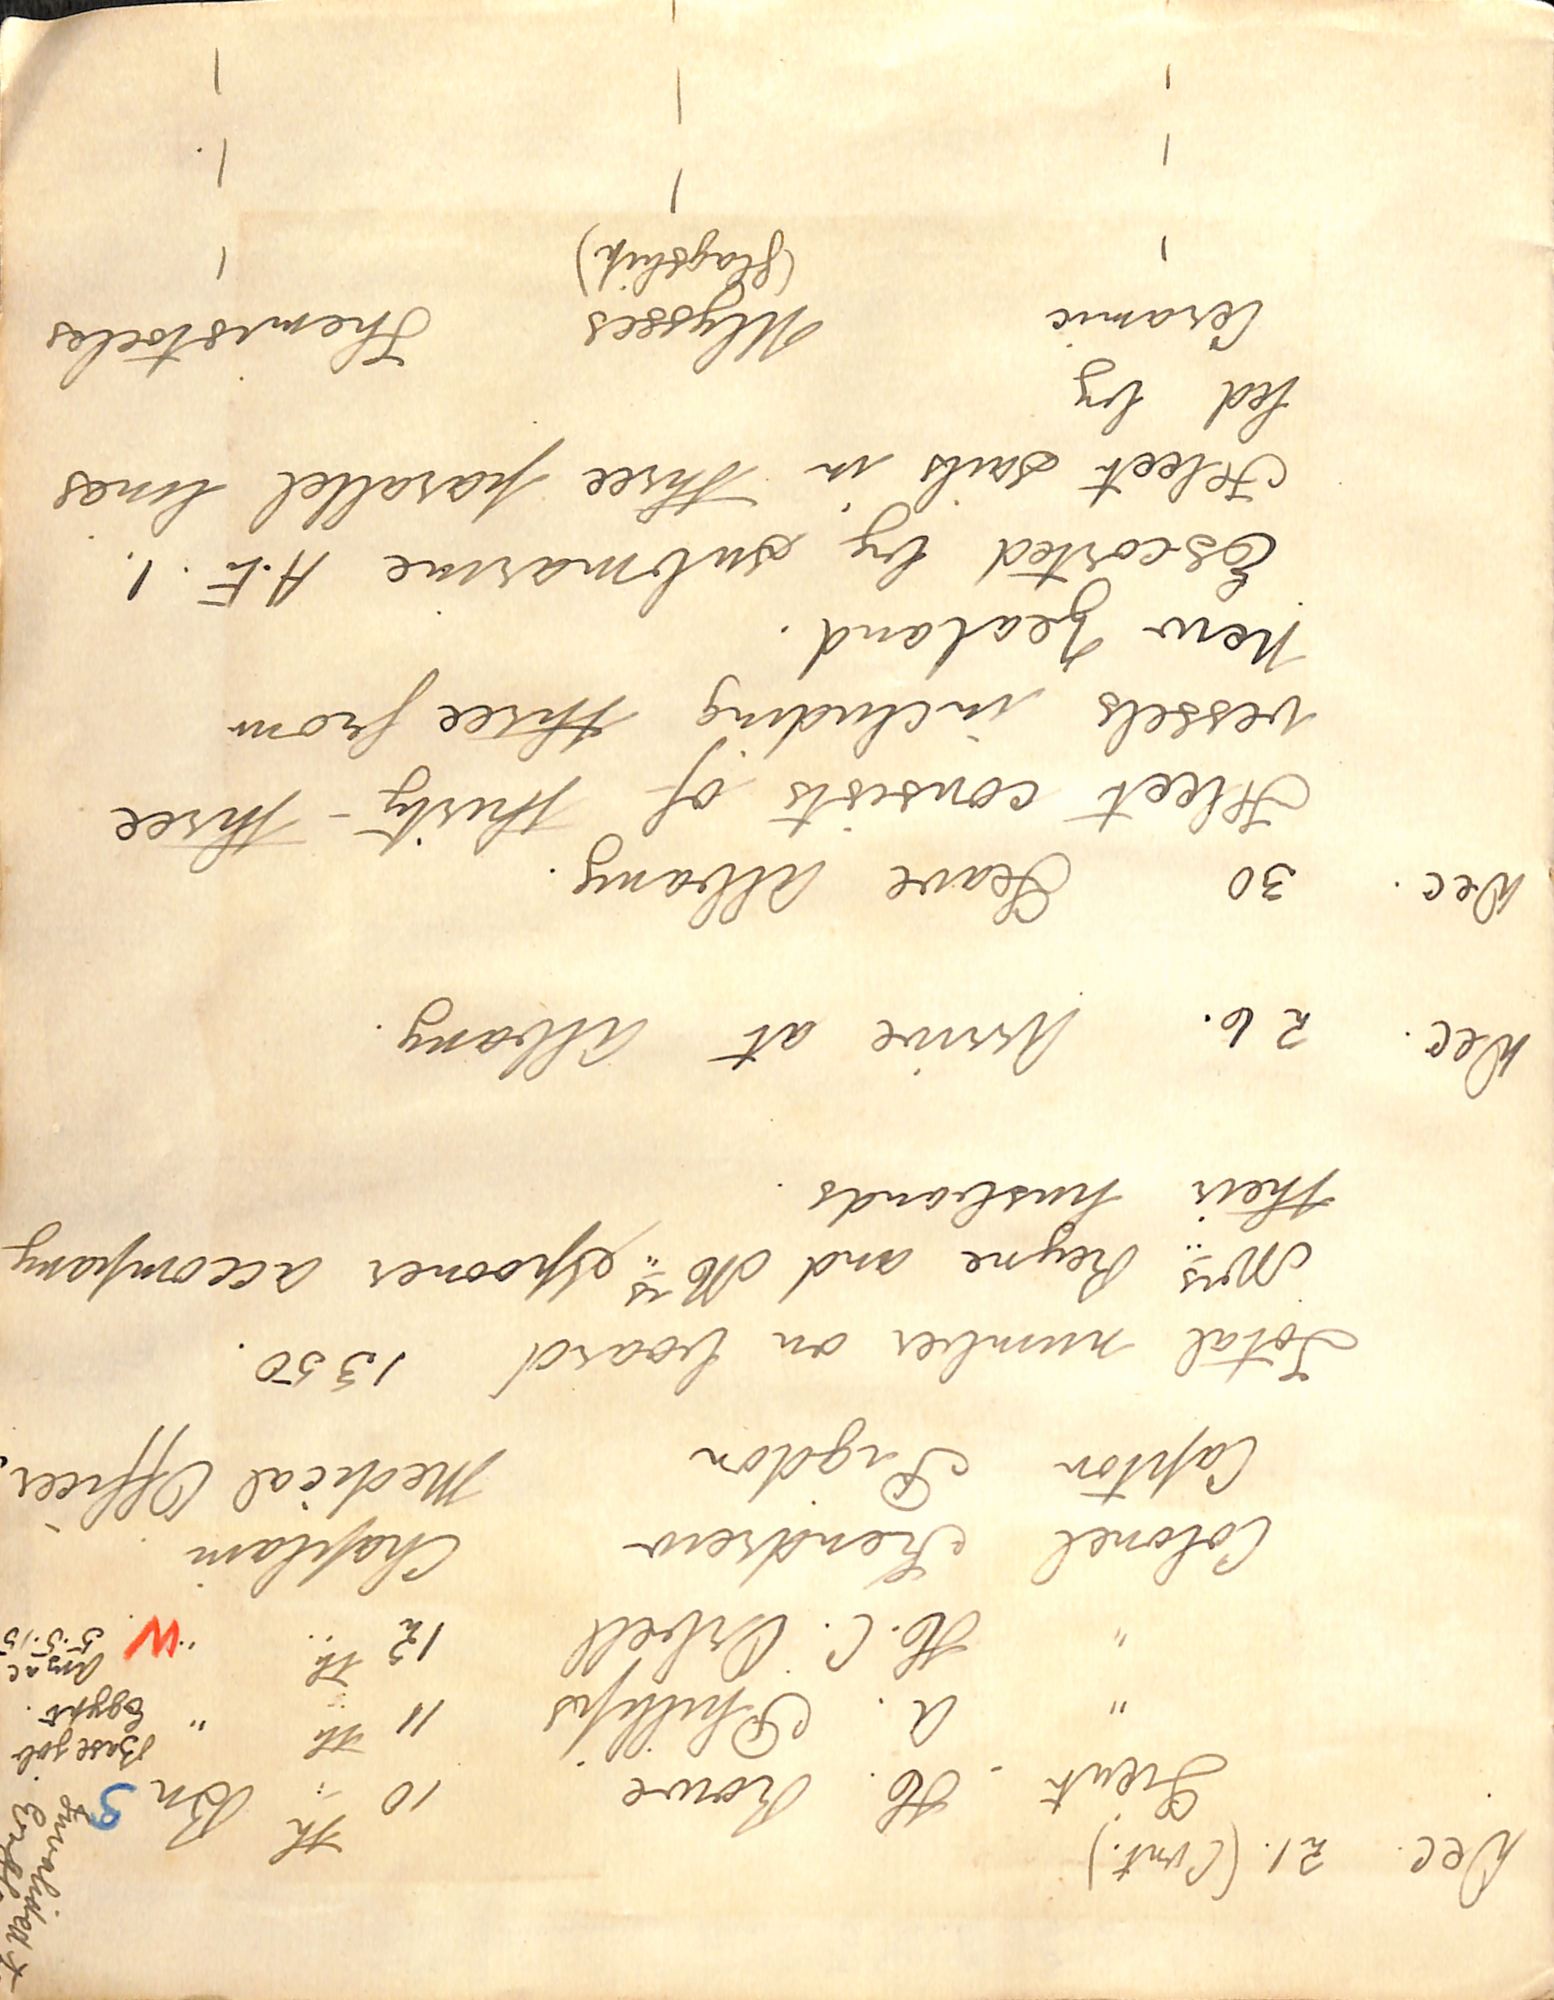 Dec. 21. (Cont.)
Lieut. H. Rowe 10 th Bn S Invalided to
" A. Phillips 11 th " Base job Egypt.
" H. C. Orbell 12 th " W Anzac 5.5.15
Colonel Kendrew Chaplain
Captn Pigdon Medical Officer.
Total number on board 1350.
Mrs. Reyne and Mrs. Spooner accompany
their husbands.
Dec. 26. Arrive at Albany.
Dec. 30 Leave Albany.
Fleet consists of thirty-three
vessels including three from
New Zealand.
Escorted by submarine A.E.1.
Fleet sails in three parallel lines
led by
Ceramic Ulysses Themistocles
(flagship)